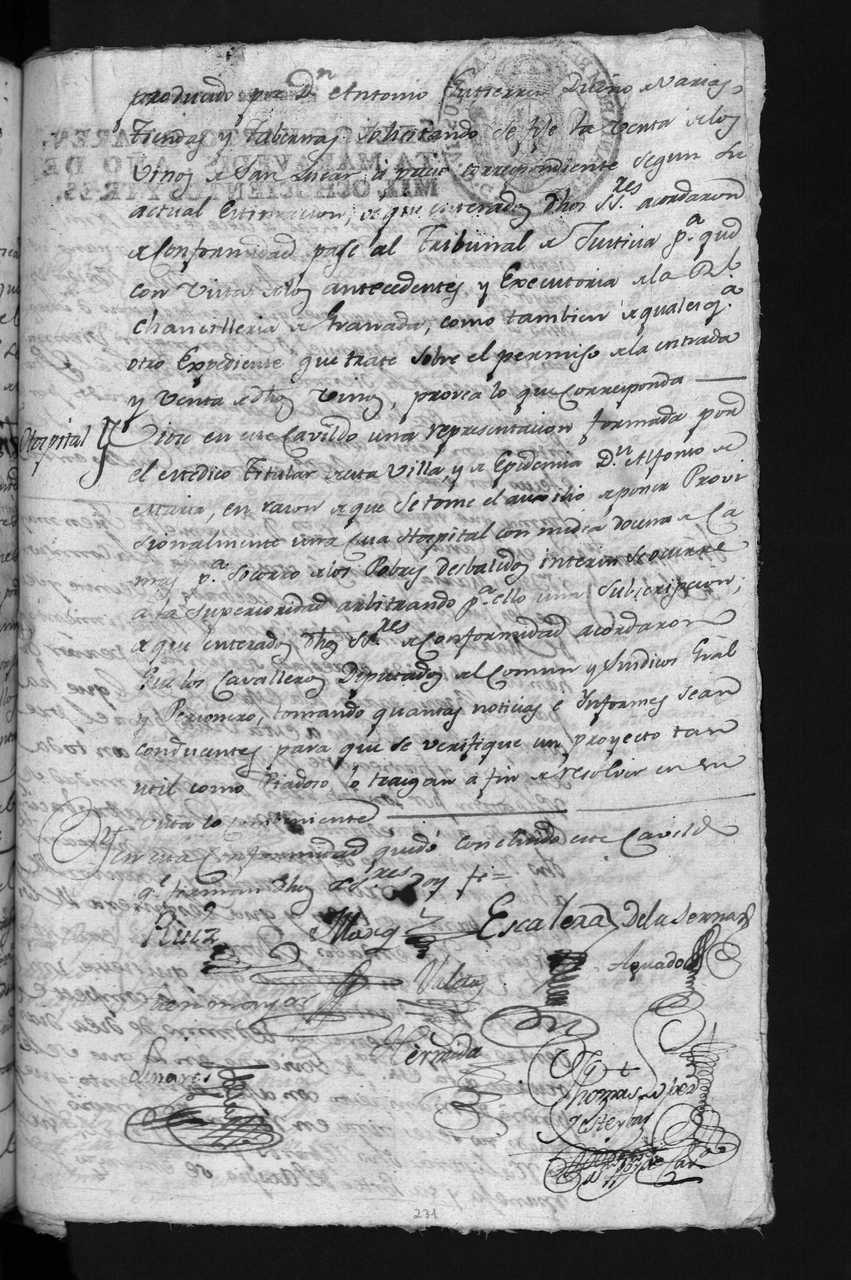 producido por Dn Antonio Gutierrez Dueño de Varias
Tiendas y Tabernas solicitando se fixe la venta de los
Vinos de San Lucar, a precio correspondiente segun su
actual Estimacion; de que enterados dhos SSres acordaron
de Conformidad pase al Tribunal de Justicia pa que
con Vista de los antecedentes y Executoria de la Rl
Chancilleria de Granada, como tambien de qualesqa
otro Expediente que trate sobre el permiso de la entrada
y Venta de dhos Vinos, provea lo que Corresponda
Hospital
Viose en este Cavildo una representacion formada por
el Medico Titular de esta Villa, y de Epidemia Dn Alfonso de
Maria, en razon de que se tome el auxilio de poner Provi
sionalmente una Casa Hospital con media docena de Ca
mas pa Socorro de los Pobres desbalidos interin se ocurre
a la Superioridad arbitrando pa ello una Subscripcion;
de que enterados dhos SSres de Conformidad acordaron
Que los Cavalleros Diputados del Comun y Sindicos Gral
y Personero, tomando quantas noticias e Informes sean
conducentes para que se verifique un proyecto tan
util como Piadoso lo traigan a fin de resolver en su
Vista lo combeniente
En cuia Conformidad quedó Concluido este Cavildo
qe firman dhos Sres doy fe=
Ruiz Marqz Escalera Dela Serna
Velez Aguado
Hermida
Linares
Thomas
de Esteybar
231